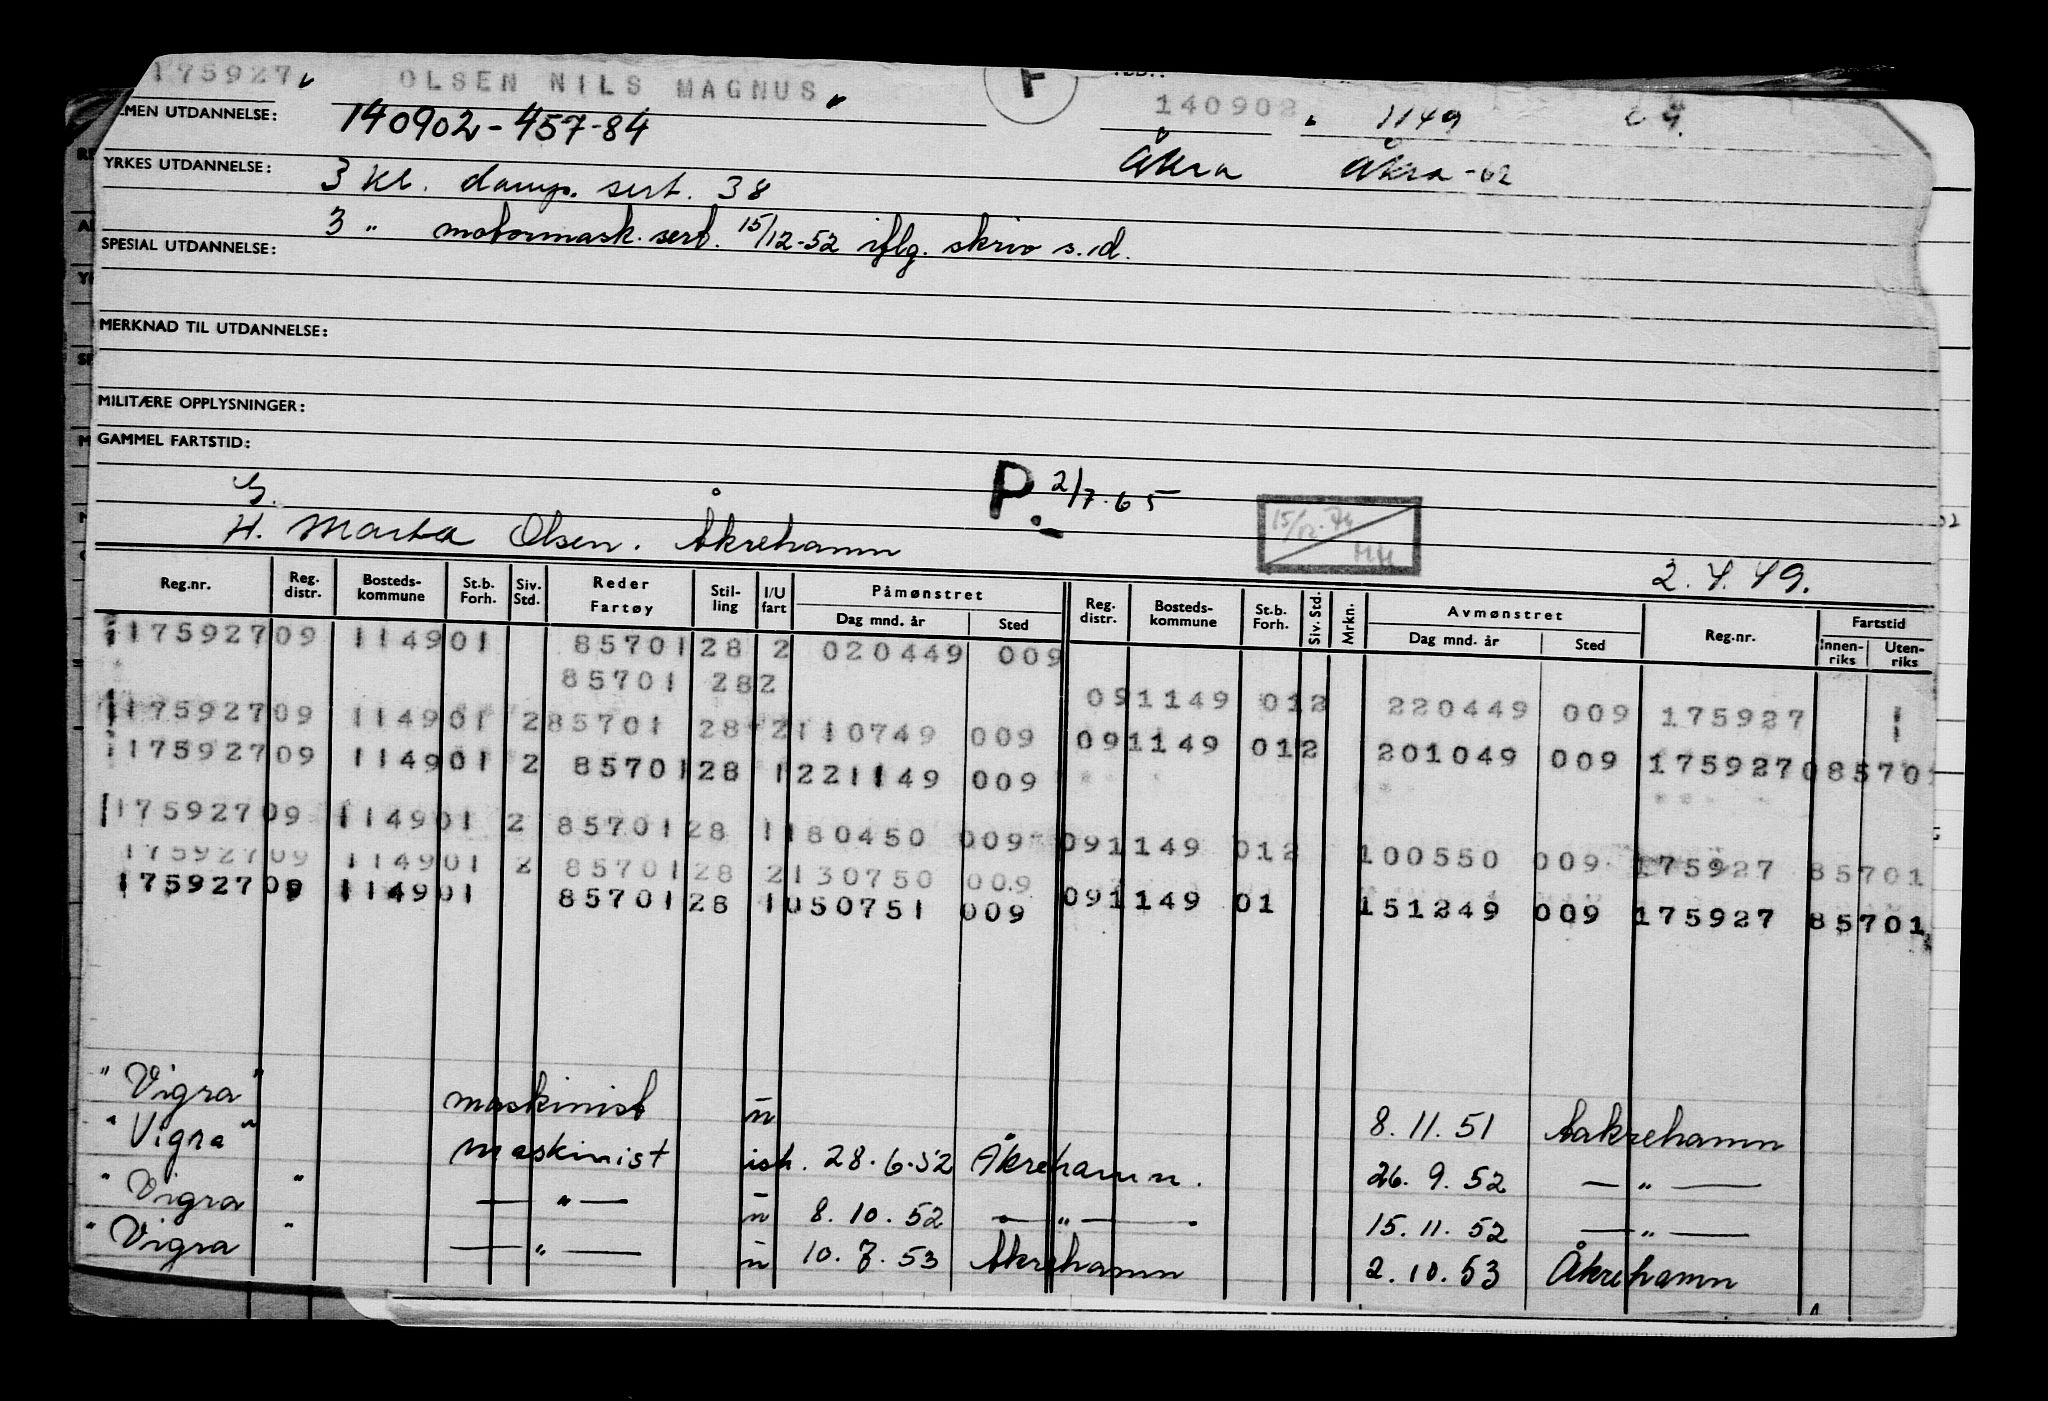 175927 OLSEN NILS MAGNUS F 140902 1149
MEN UTDANNELSE: 140902-457-84 Åkra Åkra -62
YRKES UTDANNELSE: 3 kl. damp. sert. 38
3 " motormask. sert. 15/12-52 iflg. skriv s.d.
SPESIAL UTDANNELSE:
MERKNAD TIL UTDANNELSE:
MILITÆRE OPPLYSNINGER:
GAMMEL FARTSTID:
G. P. 2/7.65
H. Marta Olsen. Åkrehamn
2.4.49.
Reg.nr. Reg. distr. Bosteds-kommune St.b. Forh. Siv. Std. Reder Fartøy Stil-ling I/U fart Påmønstret Dag mnd. år Sted Reg. distr. Bosteds-kommune St.b. Forh. Siv. Std. Mrkn. Avmønstret Dag mnd. år Sted Reg.nr. Fartstid Innen-riks Uten-riks
17592709 114901 8570128 2 020449 009
85701 282 091149 012 220449 009 175927
17592709 114901 285701 28 2110749 009 091149 012 201049 009 175927085701
17592709 114901 2 8570128 1221149 009
17592709 114901 2 8570128 1180450 009 091149 012 100550 009 175927 85701
17592709 114901 2 8570128 2130750 009
17592709 114901 8570128 1050751 009 091149 01 151249 009 175927 85701
"Vigra" maskinist u 8.11.51 Aakrehamn
"Vigra" maskinist ish. 28.6.52 Åkrehamn. 26.9.52 — " —
"Vigra " — " — u 8.10.52 — " — 15.11.52 — " —
"Vigra " — " — u 10.7.53 Åkrehamn 2.10.53 Åkrehamn